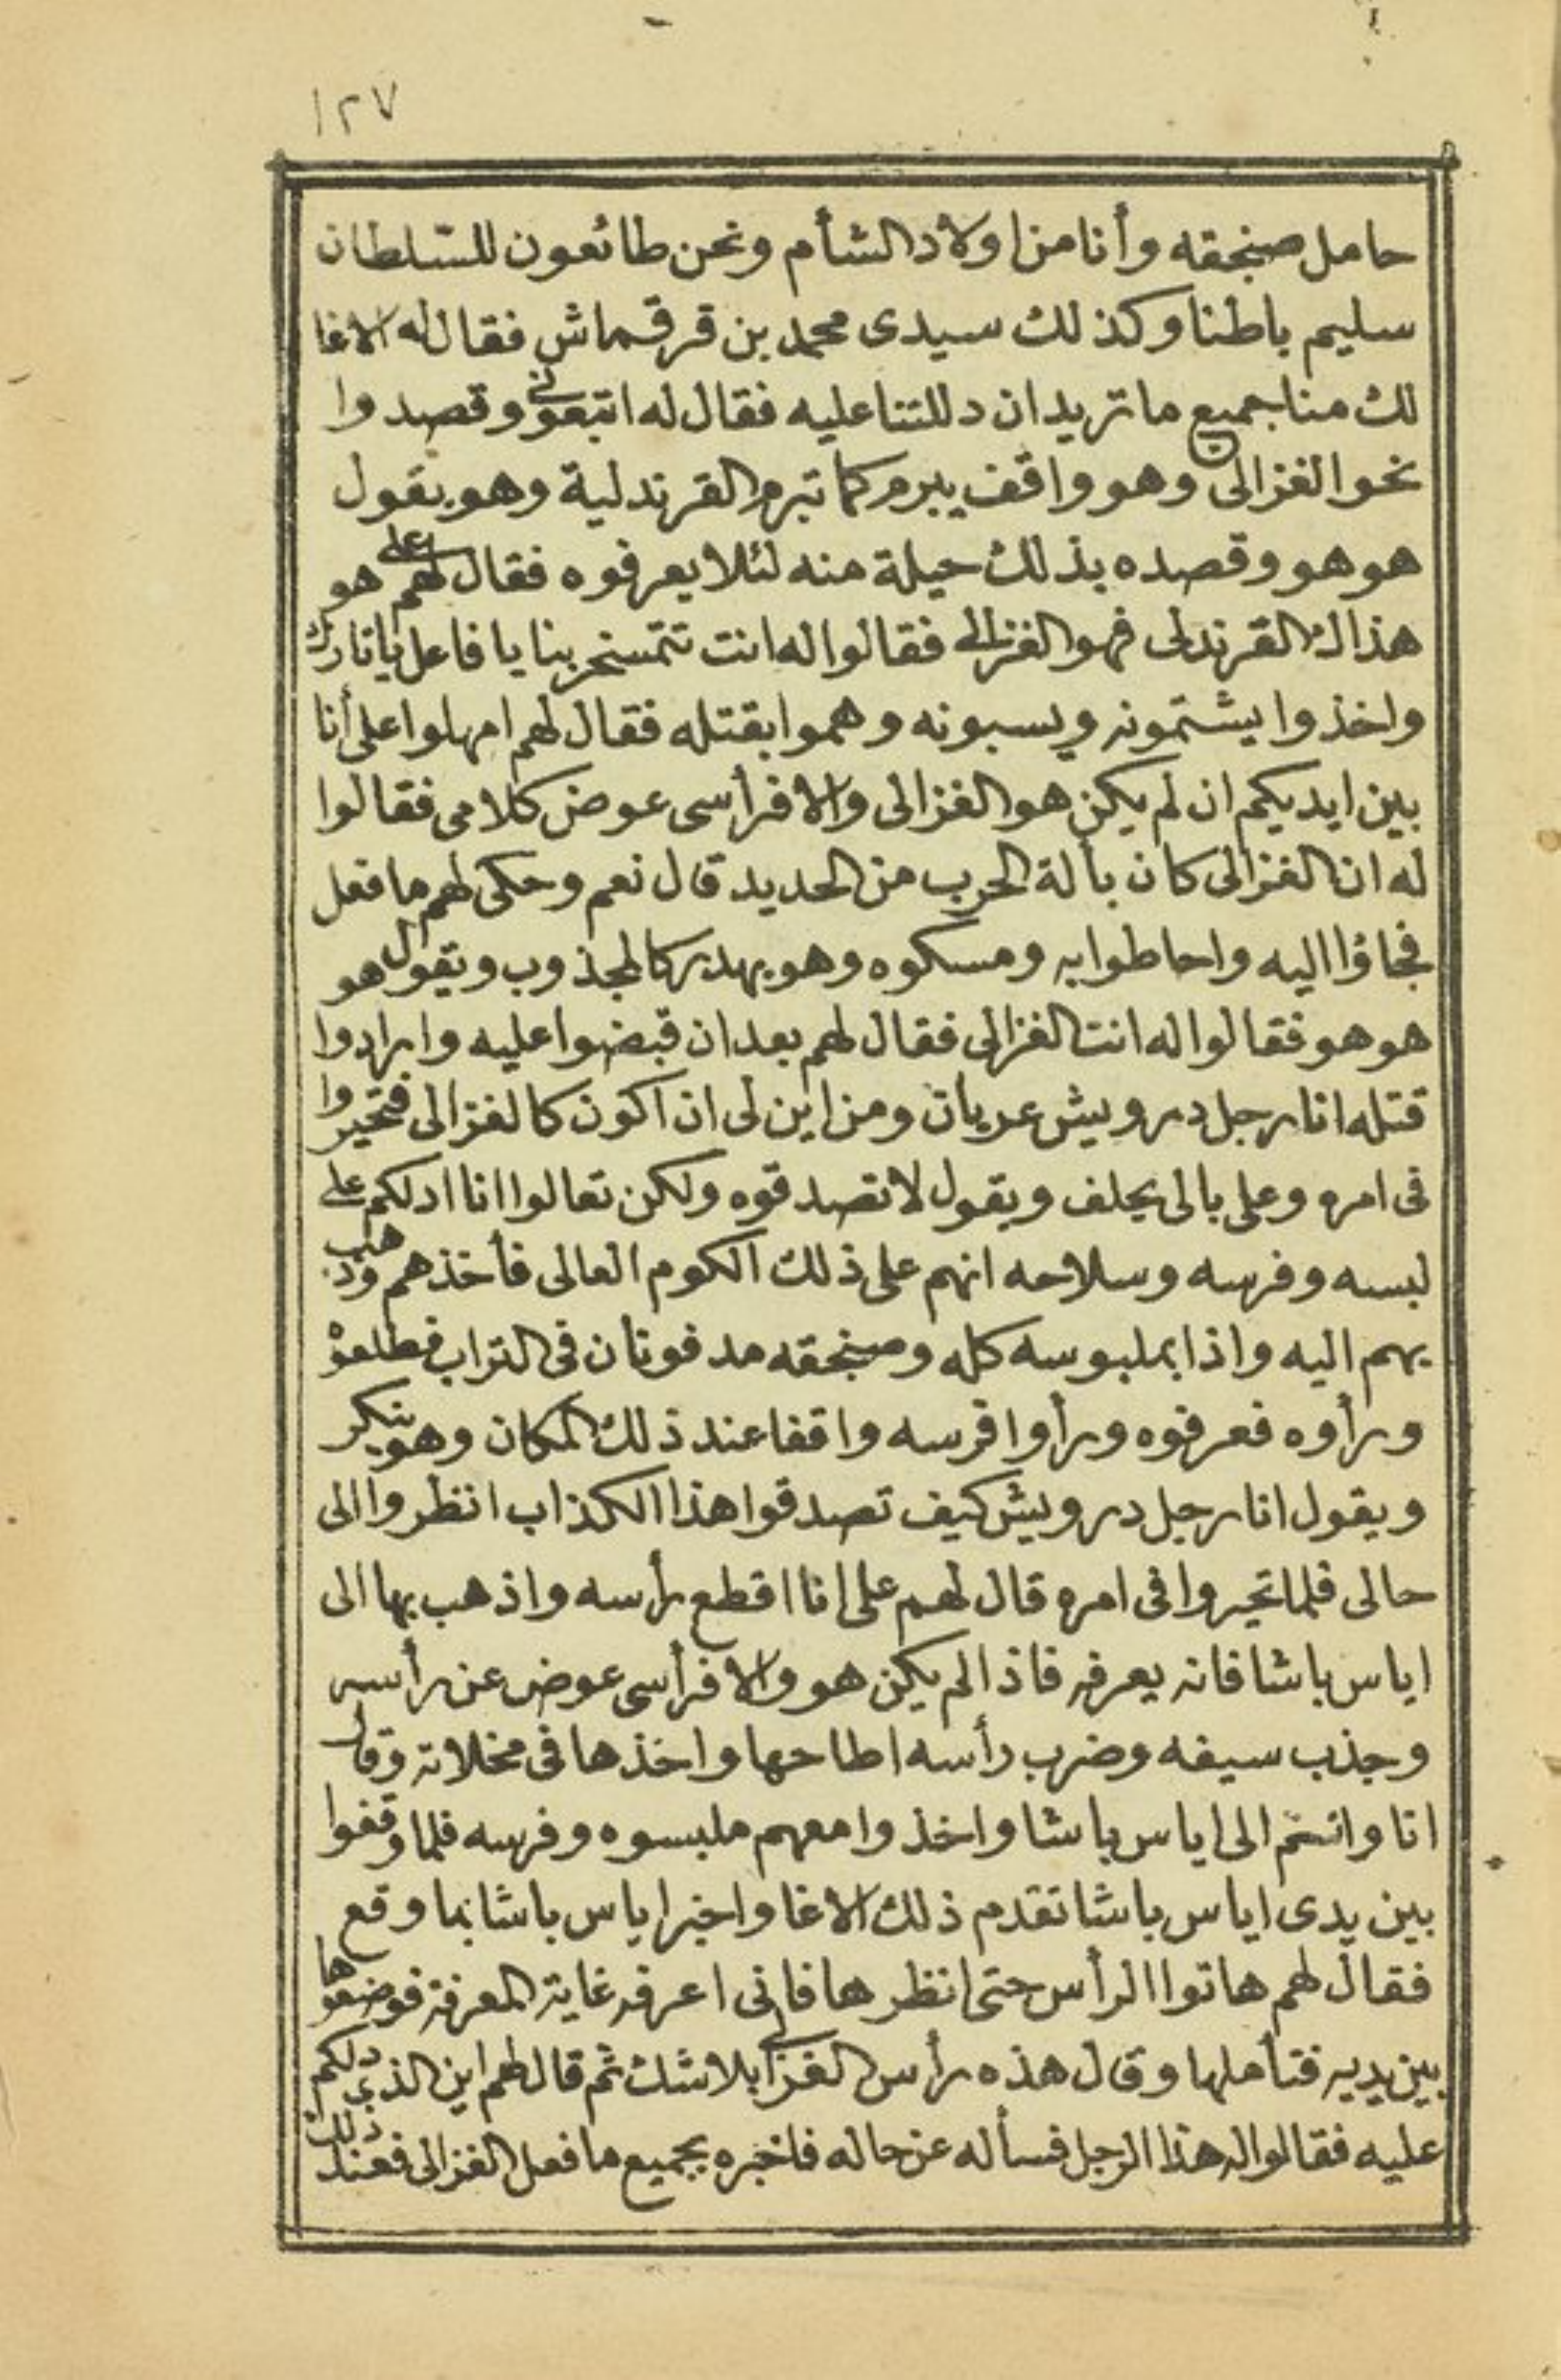 ١٢٧
حامل صنجقه وأنا من اولاد الشأم ونحن طائعون للسّلطان
سليم باطنا وكذلك سيدى محمد بن قرقماش فقال له الاغا
لك منا جميع ما تريد ان دللتنا عليه فقال له اتبعونى وقصدوا
نحو الغزالى وهو واقف يبرم كما تبرم القرندلية وهو يقول
هو هو وقصده بذلك حيلة منه لئلا يعرفوه فقال لهم على هو
هذاك القرندلى فهو الغزالى فقالوا له انت تتمسخر بنا يا فاعل يا تارك
واخذوا يشتمونه ويسبونه وهموا بقتله فقال لهم امهلوا على أنا
بين ايديكم ان لم يكن هو الغزالى والا فرأسى عوض كلامى فقالوا
له ان الغزالى كان بألة الحرب من الحديد قال نعم وحكى لهم ما فعل
فجاؤا اليه واحاطوا به ومسكوه وهو يهدر كالمجذوب ويقول هو
هو هو فقالوا له انت الغزالى فقال لهم بعد ان قبضوا عليه وارادوا
قتله انا رجل درويش عريان ومن اين لى ان اكون كالغزالى فتحيروا
فى امره وعلى بالى يحلف ويقول لا تصدقوه ولكن تعالوا انا ادلكم على
لبسه وفرسه وسلاحه انهم على ذلك الكوم العالى فأخذهم وذهب
بهم اليه واذا بملبوسه كله وصنجقه مدفونان فى التراب فطلعوه
ورأوه فعرفوه ورأوا فرسه واقفا عند ذلك المكان وهو ينكر
ويقول انا رجل درويش كيف تصدقوا هذا الكذاب انظروا الى
حالى فلما تحيروا فى امره قال لهم على انا اقطع رأسه واذهب بها الى
اياس باشا فانه يعرفه فاذا لم يكن هو والا فرأسى عوض عن رأسه
وجذب سيفه وضرب رأسه اطاحها واخذها فى مخلاته وقال
انا وانتم الى اياس باشا واخذوا معهم ملبسوه وفرسه فلما وقفوا
بين يدى اياس باشا تقدم ذلك الاغا واخبر اياس باشا بما وقع
فقال لهم هاتوا الرأس حتى انظرها فانى اعرفه غاية المعرفة فوضعوها
بين يديه فتأملها وقال هذه رأس الغزالى بلا شك ثم قال لهم اين الذى دلكم
عليه فقالوا له هذا الرجل فسأله عن حاله فاخبره بجميع ما فعل الغزالى فعند ذلك